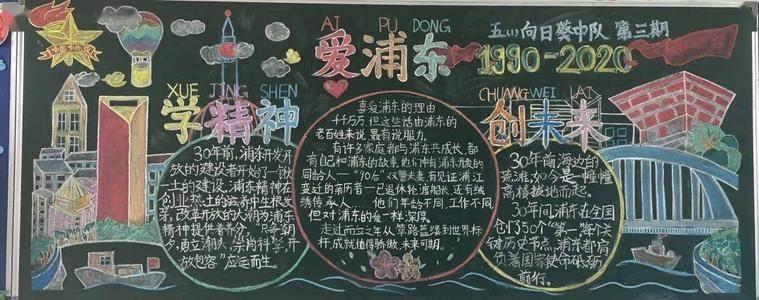 AI PU DONG
爱浦东
五(1)向日葵中队 第三期
1990-2020
XUE JING SHEN
学精神
30年前,浦东开发开
放的建设者开始了一锹
土的建设,浦东精神在
创业热土的滋养中生根发
芽,改革开放的大潮为浦东
精神提供着养分,
勇立潮头、崇尚科学、开
放包容”应运而生。
喜爱浦东的理由
千千万万,但这些话由浦东的
老百姓来说,最有说服力。
有许多家庭都与浦东共成长,都
有自己和浦东的故事,他们中有浦东开发的
同龄人—“90后”双警夫妻,有见证浦江
变迁的亲历者—已退休轮渡船长,还有绒
绣传承人……他们年龄不同,工作不同,
但对浦东的爱一样深厚。
走过而立之年,从筚路蓝缕到世界标
杆,成就值得骄傲,未来可期。
CHUANG WEI LAI
创未来
30年前,海边的
荒滩,如今是一幢幢
高楼拔地而起。
30年间,浦东在全国
创下50个“第一”,每个关
键历史节点,浦东都肩
负着国家使命,砥砺
前行。